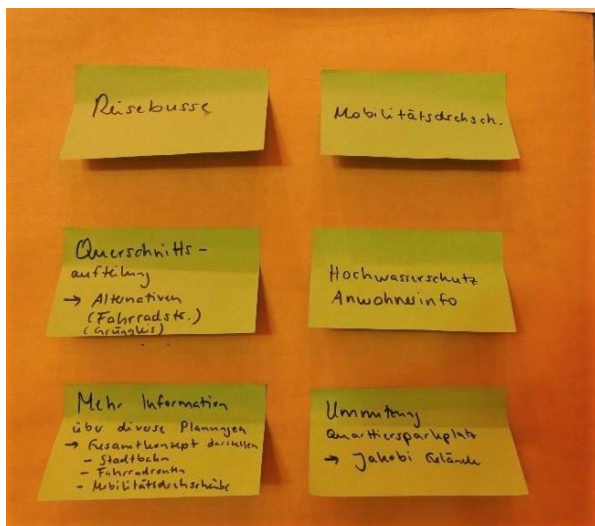 Reisebusse
Mobilitätsdrehsch.
Querschnitts-
aufteilung
→ Alternativen
(Fahrradstr.)
(Grüngleis)
Hochwasserschutz
Anwohnerinfo
Mehr Information
über diverse Planungen
→ Gesamtkonzept darstellen
- Stadtbahn
- Fahrradrouten
- Mobilitätsdrehscheibe
Umnutzung
Quartiersparkplatz
→ Jakobi Gelände